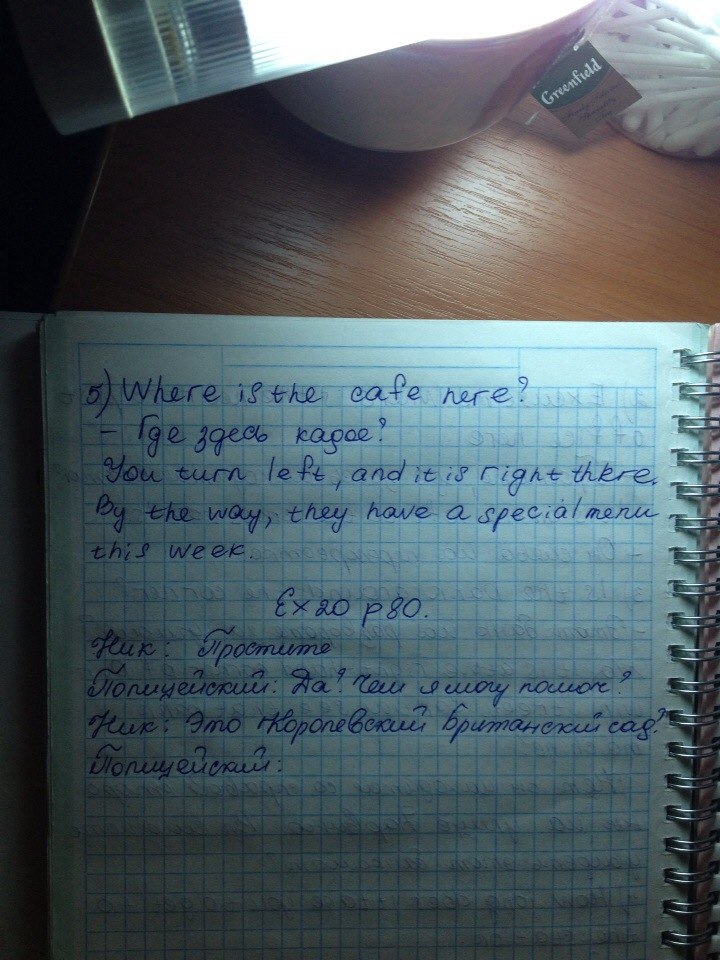 Greenfield
5) Where is the cafe here?
- Где здесь кафе?
You turn left, and it is right there.
By the way, they have a special menu
this week.
Ex 20 p 80.
Ник: Простите
Полицейский: Да? Чем я могу помоч?
Ник: Это Королевский Британский сад?
Полицейский: